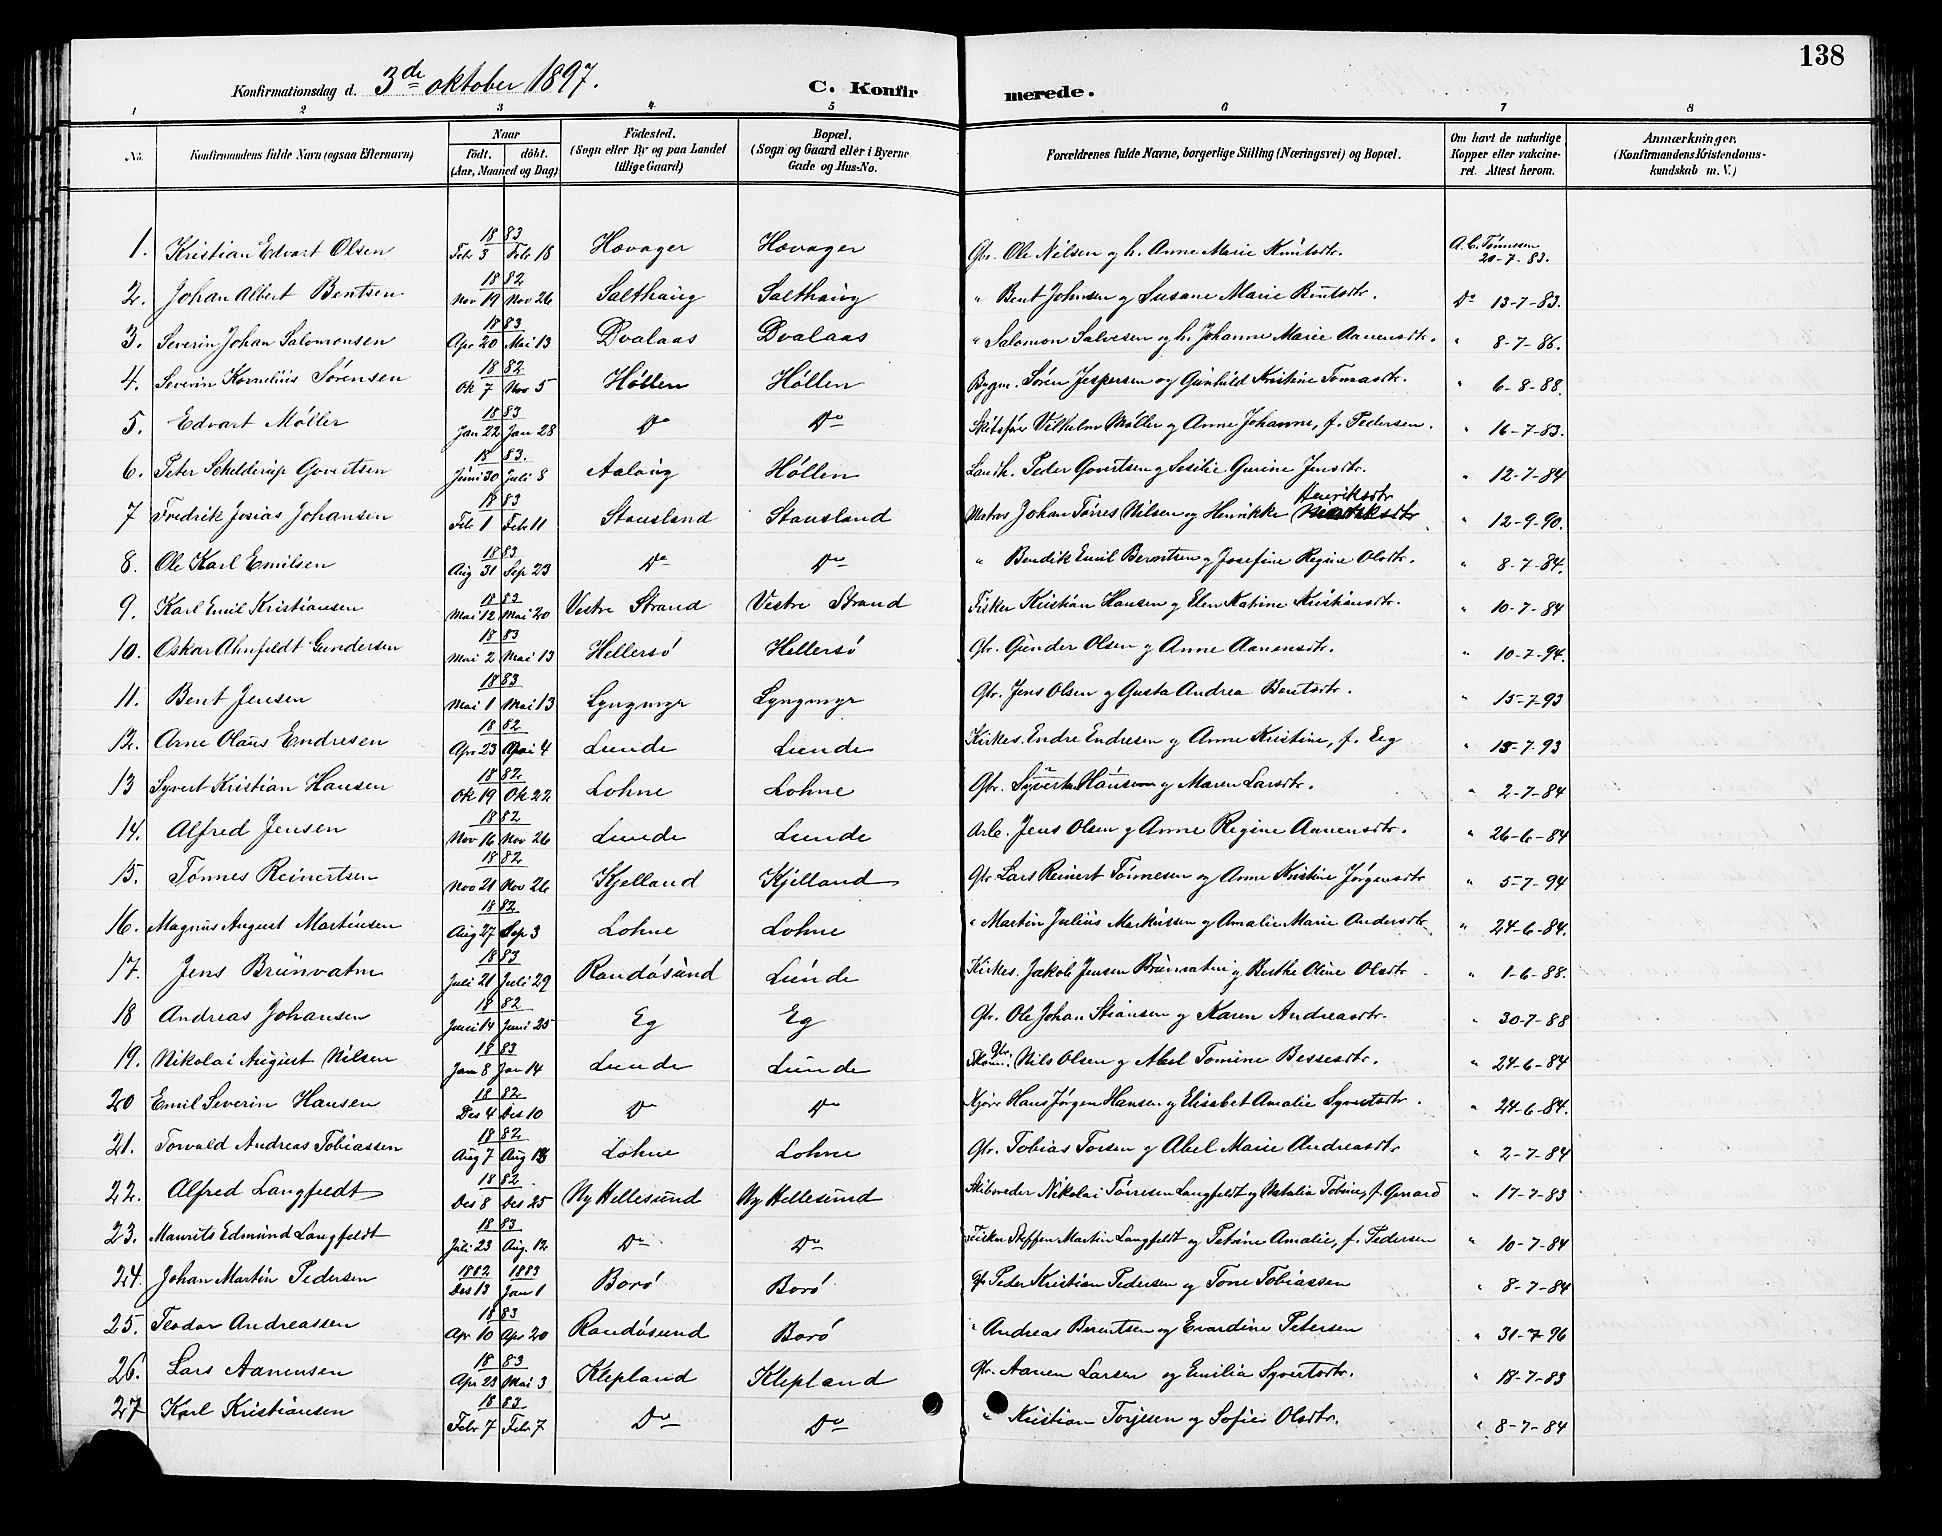 138
Konfirmationsdag d. 3de oktober 1897. C. Konfirmerede.
1 2 3 4 5 6 7 8
No. Konfirmandens fulde Navn (ogsaa Efternavn) Naar født. døbt. (Aar, Maaned og Dag) Födested. (Sogn eller By og paa Landet tillige Gaard) Bopæl. (Sogn og Gaard eller i Byerne Gade og Hus-No. Forældrenes fulde Navne, borgerlige Stilling (Næringsvei) og Bopæl. Om havt de naturlige Kopper eller vakcineret. Attest herom. Anmærkninger. (Konfirmandens Kristendomskundskab m. V.)
1. Kristian Edvart Olsen 1883 Febr 3 Febr 18 Hovager Hovager Gbr. Ole Nilsen og h. Anne Marie Knutsdtr. A. C. Tønnessen 20-7-83.
2. Johan Albert Bentsen 1882 Nov 19 Nov 26 Salthaug Salthaug " Bent Johnsen og Susane Marie Bentsdtr. Do 13-7-83.
3. Severin Johan Salomonsen 1883 Apr 20 Mai 13 Dvalaas Dvalaas " Salomon Salvesen og h. Johanne Marie Aanensdtr. " 8-7-86.
4. Severin Kornelius Sørensen 1882 Ok 7 Nov 5 Høllen Høllen Bygm. Søren Jespersen og Gunhild Kristine Tomasdtr. " 6-8-88.
5. Edvart Møller 1883 Jan 22 Jan 28 Do Do Skibsfører Vilhelm Møller og Anne Johanne, f. Pedersen. " 16-7-83.
6. Peter Schelderup Govertsen 1883. Juni 30 Juli 8 Aalaug Høllen Landh. Peder Govertsen og Sesilie Gurine Jensdtr. " 12-7-84
7 Fredrik Josias Johansen 1883 Febr 1 Febr 11 Stausland Stausland Matros Johan Tørres Nilsen og Henrikke Henriksdtr " 12-9-90.
8. Ole Karl Emilsen 1883 Aug 31 Sep 23 Do Do " Bendik Emil Berntsen og Josefine Regine Olsdtr. " 8-7-84.
9. Karl Emil Kristiansen 1883 Mai 12 Mai 20 Vestre Strand Vestre Strand Fisker Kristian Hansen og Elen Katrine Kristiansdtr. " 10-7-84
10. Oskar Ahnfeldt Gundersen 1883 Mai 2 Mai 13 Hellersø Hellersø Gbr. Gunder Olsen og Anne Aanensdtr. " 10-7-94.
11. Bent Jensen 1883 Mai 1 Mai 13 Lyngmyr Lyngmyr Gbr. Jens Olsen og Gusta Andrea Bentsdtr. " 15-7-93
12. Arne Olaus Endresen 1882 Apr 23 4 Lunde Lunde Kirkes. Endre Endresen og Anne Kristine, f. Eeg " 15-7-93
13 Syvert Kristian Hansen 1882. Ok 19 Ok 22 Lohne Lohne Gbr. Hans og Maren Larsdtr. " 2-7-84
14. Alfred Jensen 1882 Nov 16 Nov 26 Lunde Lunde Arb. Jens Olsen og Anne Regine Aanensdtr. " 26-6-84
15. Tønnes Reinertsen 1882 Nov 21 Nov 26 Kjelland Kjelland Gbr Lars Reinert Tønnesen og Anne Kristine Jørgensdtr " 5-7-94
16. Magnus August Martinsen 1882 Aug 27 Sep 3 Lohne Lohne " Martin Julius Markussen og Amalie Marie Andersdtr. " 24-6-84.
17. Jens Brunvatne 1883 Juli 21 Juli 29 Randøsund Lunde Kirkes. Jakob Jensen Brunvatne og Berthe Oline Olsdtr " 1-6-88.
18 Andreas Johansen 1882 Juni 14 Juni 25 Eg Eg Gbr. Ole Johan Stiansen og Karen Andreasdtr. " 30-7-88
19. Nikolai August Nilsen 1883 Jan 8 Jan 14 Lunde Lunde Gbr. Nils Olsen og Abel Tomine Bessesdtr. " 24-6-84
20 Emil Severin Hansen 1882 Des 4 Des 10 Do Do Hans Jørgen Hansen og Elisabet Amalie Syvertsdtr. " 24-6-84.
21. Torvald Andreas Tobiassen 1882 Aug 7 Aug 13 Lohne Lohne Gbr. Tobias Torsen og Abel Marie Andreasdtr " 2-7-84
22. Alfred Langfeldt 1882. Des 8 Des 25 Ny Hellesund Ny Hellesund Skibsreder Nikolai Tørresen Langfeldt og Natalia Tobine, f. Grnard " 17-7-83
23. Maurits Edmund Langfeldt 1883 Juli 23 Aug. 12 Do Do Fisker Steffen Martin Langfeldt og Petrine Amalie, f. Pedersen " 10-7-84
24. Johan Martin Pedersen 1882 1883 Des 13 Jan 1 Borø Borø Gbr Peder Kristian Pedersen og Tone Tobiassen " 8-7-84
25. Teodor Andreassen 1883 Apr 10 Apr 20 Randøsund Borø " Andreas Berentsen og Evardine Petersen " 31-7-96
26. Lars Aanensen 1883 Apr 23 Mai 3 Klepland Klepland Gbr. Aanen Larsen og Emilia Syvertsdtr. " 18-7-83
27 Karl Kristiansen 1883 Febr 7 Febr 7 Do Do " Kristian Torjesen og Sofie Olsdtr. " 8-7-84